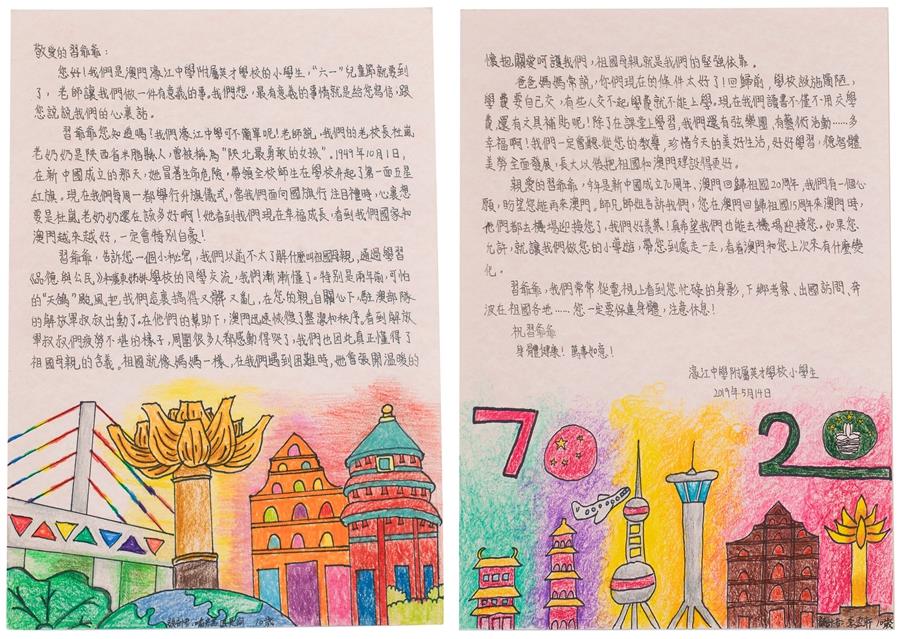 敬愛的習爺爺：
您好！我們是澳門濠江中學附屬英才學校的小學生，“六一”兒童節就要到
了，老師讓我們做一件有意義的事。我們想，最有意義的事情就是給您寫信，跟
您說說我們的心裏話。
習爺爺您知道嗎！我們濠江中學可不簡單呢！老師說，我們的老校長杜嵐
老奶奶是陝西省米脂縣人，曾被稱為“陝北最勇敢的女孩”。1949年10月1日，
在新中國成立的那天，她冒著生命危險，帶領全校師生在學校升起了第一面五星
紅旗。現在我們每周一都舉行升旗儀式，當我們面向國旗行注目禮時，心裏想
要是杜嵐老奶奶還在該多好啊！她看到我們現在幸福成長，看到我們國家和
澳門越來越好，一定會特別自豪！
習爺爺，告訴您一個小秘密，我們以前不太了解什麼叫祖國母親，通過學習
《品德與公民》學校的同學交流，我們漸漸懂了。特別是兩年前，可怕
的“天鴿”颱風，把我們這裏搞得又髒又亂，在您的親自關心下，駐澳部隊
的解放軍叔叔出動了。在他們的幫助下，澳門迅速恢復了整潔和秩序。看到解放
軍叔叔們疲勞不堪的樣子，周圍很多人都感動得哭了，我們也因此真正懂得了
祖國母親的含義。祖國就像媽媽一樣，在我們遇到困難時，她會張開溫暖的
懷抱，關愛呵護我們，祖國母親就是我們的堅強依靠。
爸爸媽媽常說，你們現在的條件太好了！回歸前，學校設施簡陋，
學費要自己交，有些人交不起學費就不能上學。現在我們讀書不僅不用交學
費，還有文具補貼呢！除了在課堂上學習，我們還有弦樂團，有藝術活動……多
幸福啊！我們一定會聽從您的教導，珍惜今天的美好生活，好好學習，德智體
美勞全面發展，長大以後把祖國和澳門建設得更好。
親愛的習爺爺，今年是新中國成立70周年、澳門回歸祖國20周年，我們有一個心
願，盼望您能再來澳門。師兄師姐告訴我們，您在澳門回歸祖國15周年來澳門時，
他們都去機場迎接您了，我們好羨慕！真希望我們也能去機場迎接您。如果您
允許，就讓我們做您的小導遊，帶您到處走一走，看看澳門和您上次來有什麼變
化。
習爺爺，我們常常從電視上看到您忙碌的身影，下鄉考察、出國訪問、奔
波在祖國各地……您一定要保重身體，注意休息！
祝習爺爺
身體健康！萬事如意！
濠江中學附屬英才學校小學生
2019年5月14日
70
20
10歲
10歲